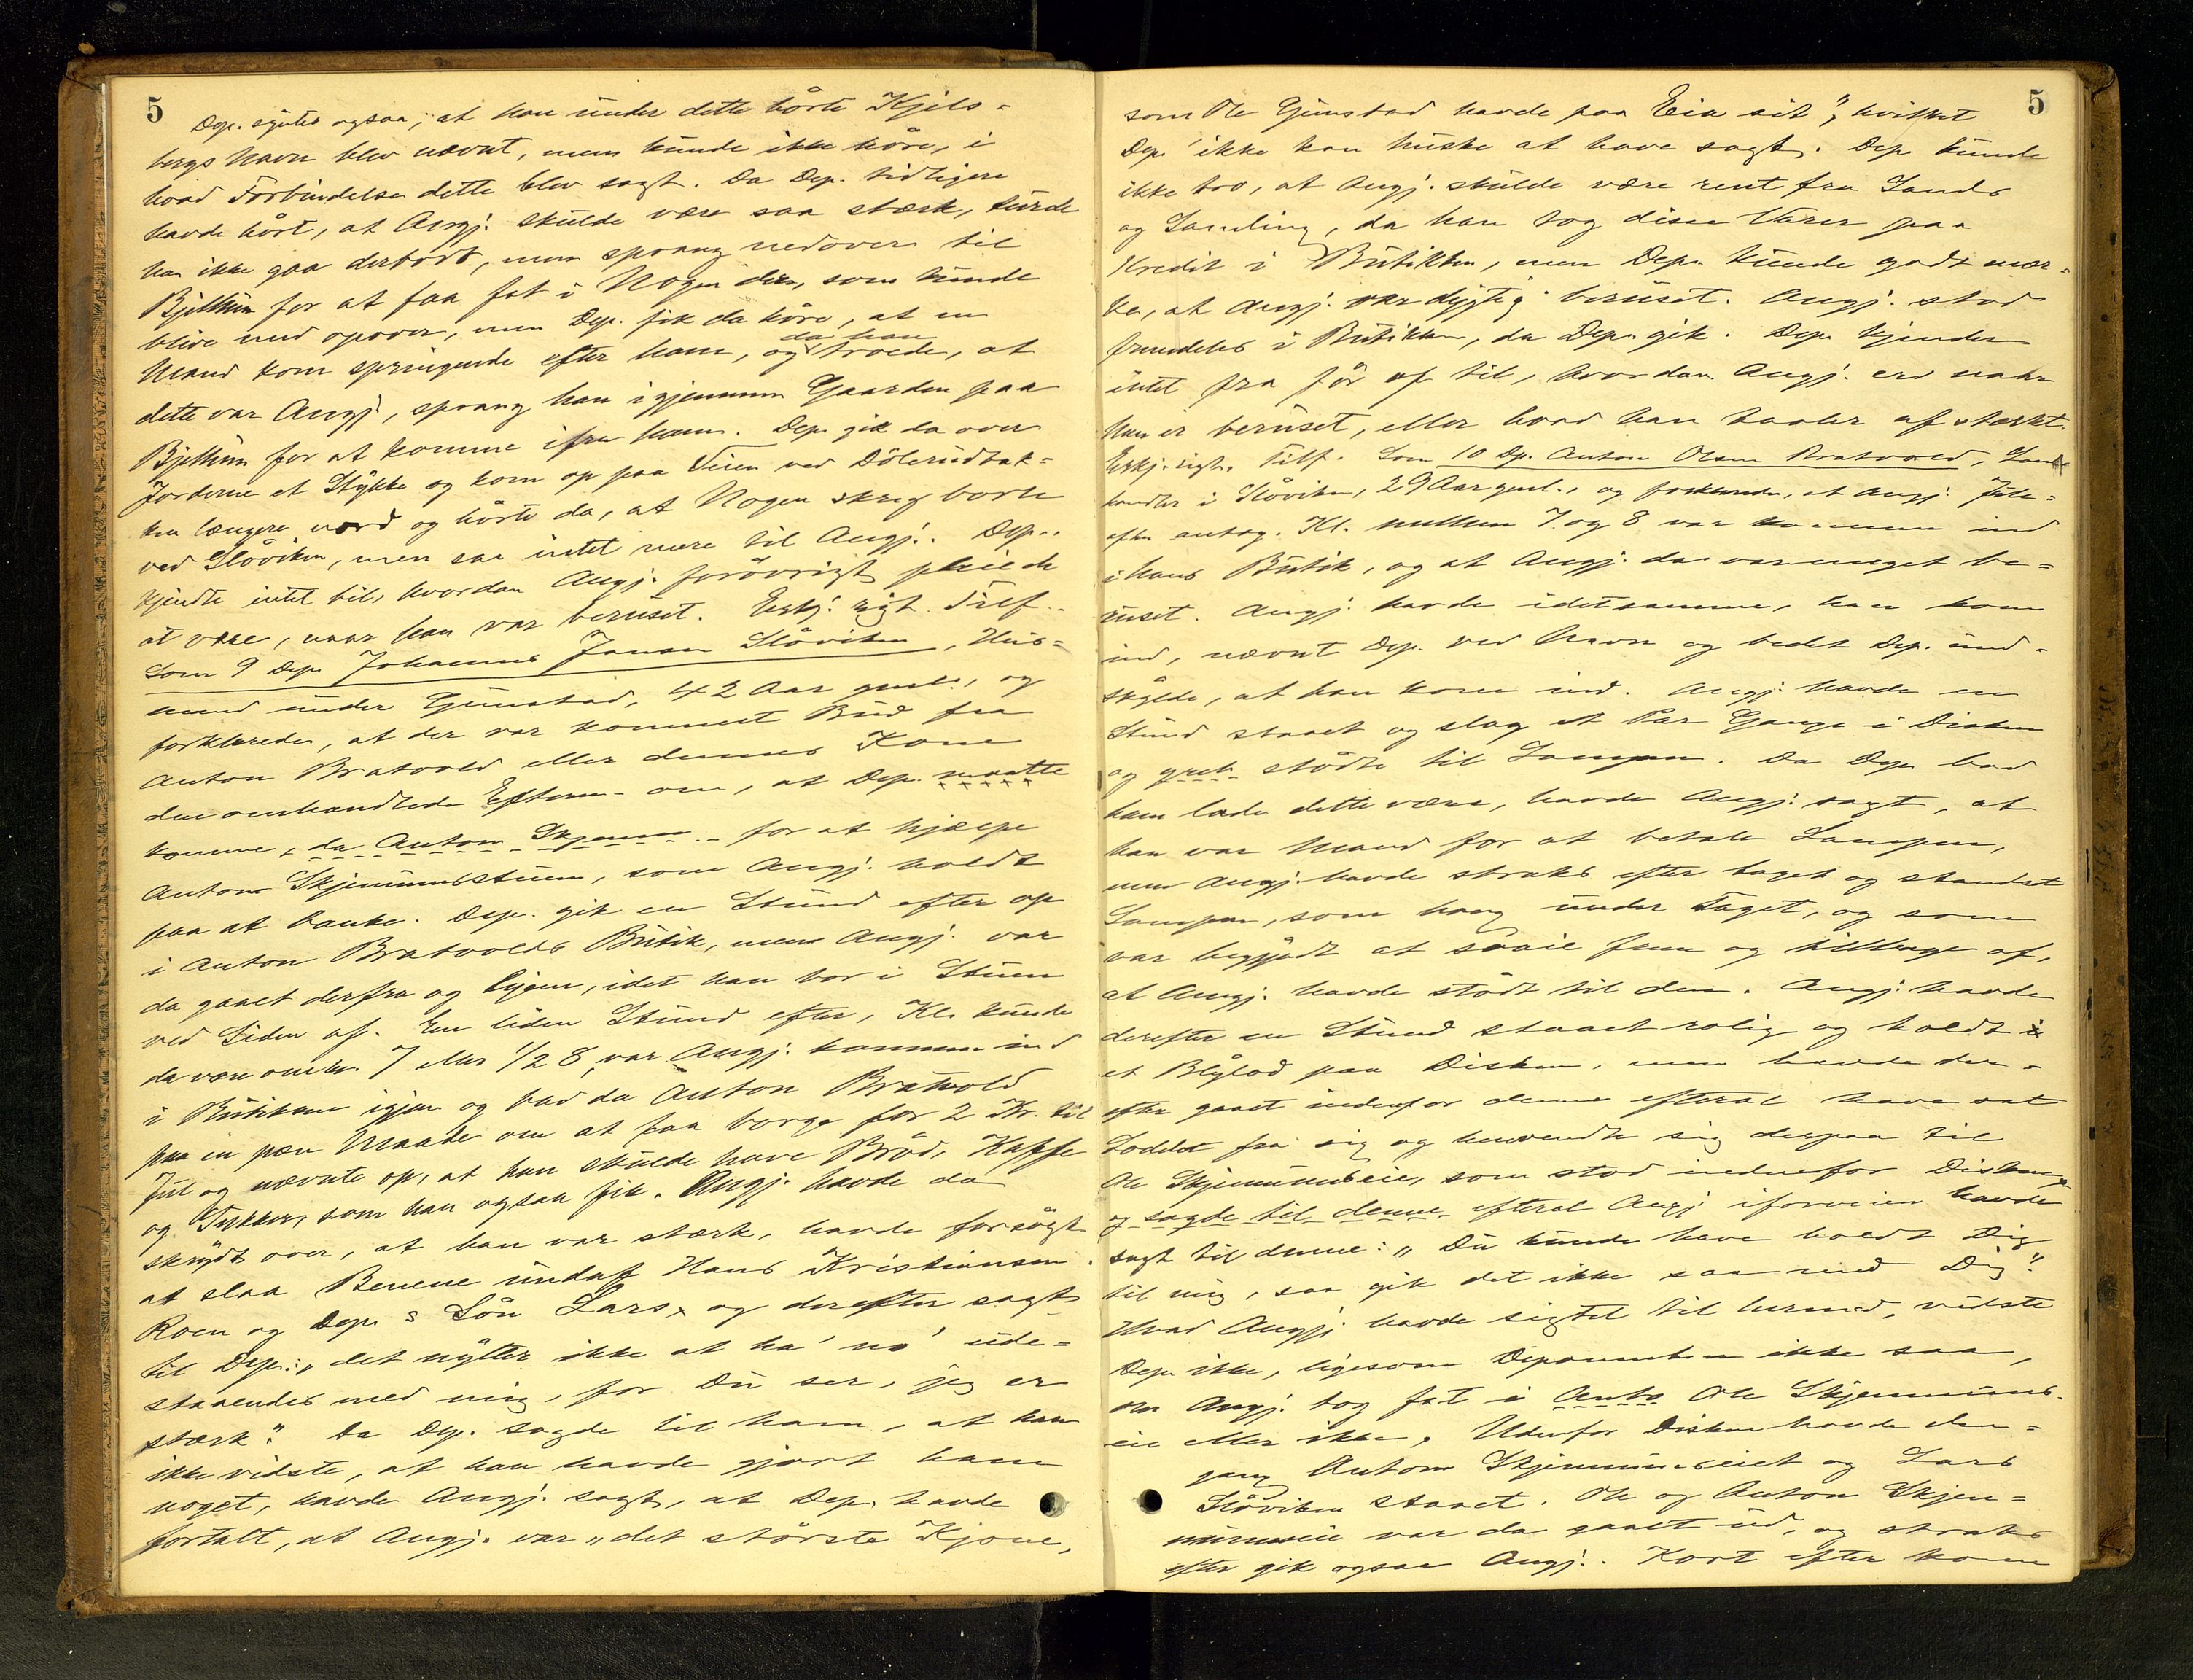 5
Dep. syntes ogsaa, at han under dette hörte Kjels-
bergs Navn blev nævnt, men kunde ikke höre, i
hvad Forbindelse dette blev sagt. Da Dep. tidligere
havde hört, at Angj. skulde være saa stærk, turde
han ikke gaa derbort, men sprang nedover til
Bjellum for at faa fat i Nogen der, som kunde
blive med opover, men Dep. fik da höre, at en
Mand kom springende efter ham, og da han troede, at
dette var Angj., sprang han igjennem Gaarden paa
Bjellum for at komme ifra ham. Dep. gik da over
Jorderne et Stykke og kom op paa Veien ved Dölerudbak-
ken længere nord og hörte da, at Nogen skreg borte
ved Slöviken, men saa intet mere til Angj. Dep.
kjendte intet til, hvordan Angj. forövrigt pleiede
at være, naar han var beruset. Erkj. rigt. Tilf.
Som 9 Dep. Johannes Jonsen Slöviken, Hus-
mand under Gjimstad, 42 Aar gml., og
forklarede, at der var kommet Bud fra
Anton Bratvold eller dennes Kone
den omhandlede Efterm. om, at Dep. maatte
komme, da Anton Skjemm for at hjælpe
Anton Skjemmmstuen, som Angj. holdt
paa at banke. Dep. gik en Stund efter op
i Anton Bratvolds Butik, men Angj. var
da gaaet derfra og hjem, idet han bor i Stuen
ved Siden af. En liden Stund efter, Kl. kunde
da være omkr. 7 eller 1/2 8, var Angj. kommen ind
i Butikken igjen og bad da Anton Bratvold
paa en pæn Maade om at faa borge for 2 Kr. til
Jul og nævnte op, at han skulde have Bröd, Kaffe
og Sukker, som han ogsaa fik. Angj. havde da
skrydt over, at han var stærk, havde forsögt
at slaa Benene undaf Hans Kristiansen
Roen og Dep.s Sön Lars, og derefter sagt
til Dep.: „det nytter ikke at ha' no' ude-
staaendes med mig, for Du ser, jeg er
stærk". Da Dep. sagde til ham, at han
ikke vidste, at han havde gjort ham
noget, havde Angj. sagt, at Dep. havde
fortalt, at Angj. var „det störste Kjone,
5
som Ole Gjimstad havde paa Eia sit", hvilket
Dep. ikke kan huske at have sagt. Dep. kunde
ikke tro, at Angj. skulde være rent fra Sands
og Samling, da han tog disse Varer paa
Kredit i Butikken, men Dep. kunde godt mær-
ke, at Angj. var dygtig beruset. Angj. stod
fremdeles i Butikken, da Dep. gik. Dep. kjender
intet fra för af til, hvordan Angj. er naar
han er beruset, eller hvad han taaler af stærkt.
Erkj. rigt. Tilf. Som 10 Dp. Anton Olsen Bratvold, Land-
handler i Slöviken, 29 Aar gml., og forklarede, at Angj. Jule-
aften antag. Kl. mellem 7 og 8 var kommen ind
i hans Butik, og at Angj. da var meget be-
ruset. Angj. havde idetsamme, han kom
ind, nævnt Dep. ved Navn og bedet Dep. und-
skylde, at han kom ind. Angj. havde en
Stund staaet og slog et Par Gange i Disken
og greb stödte til Lampen. Da Dep. bad
ham lade dette være, havde Angj. sagt, at
han var Mand for at betale Lampen,
men Angj. havde straks efter taget og standset
Lampen, som hang under Taget, og som
var begyndt at svaie frem og tilbage af,
at Angj. havde stödt til den. Angj. havde
derefter en Stund staaet rolig og holdt i
et Blylod paa Disken, men havde der-
efter gaaet indenfor denne efterat have sat
Loddet fra sig og henvendte sig derpaa til
Ole Skjemmmseie, som stod indenfor Disken,
og sagde til denne, efterat Angj. iforveien havde
sagt til denne: „Du kunde have holdt Dig
til mig, saa gik det ikke saa med Dig".
Hvad Angj. havde sigtet til hermed, vidste
Dep. ikke, ligesom Deponenten ikke saa,
om Angj. tog fat i Anto Ole Skjemmms-
eie eller ikke. Udenfor Disken havde den-
gang Anton Skjemmmseiet og Lars
Slöviken staaet. Ole og Anton Skjem-
mmseie var da gaaet ud, og straks
efter gik ogsaa Angj. Kort efter kom